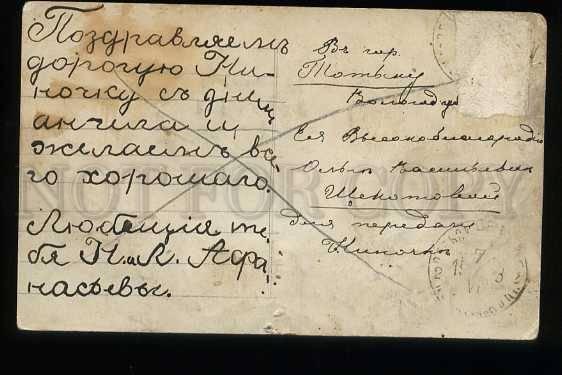 Поздравляемъ
дорогую Ни-
ночку съ днемъ
ангела и
желаемъ все-
го хорошаго.
Любящiе те-
бя Н. и К. Афа-
насьевы.
Въ гор.
Тотьму
Вологод
Ея Высокоблагородiю
Ольгѣ Васильевнѣ
Щекотовой
для передачи
Ниночкѣ
NOT FOR COPY